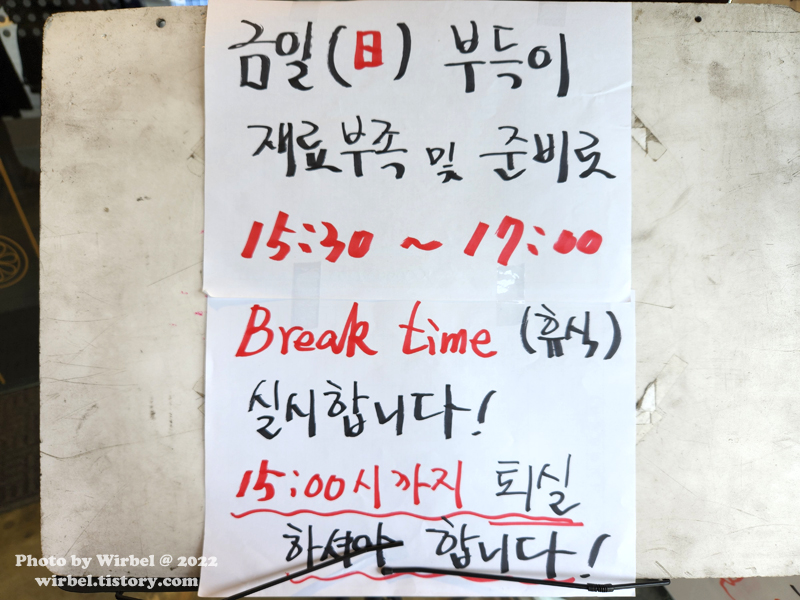 금일(日) 부득이
재료부족 및 준비로
15:30 ~ 17:00
Break time (휴식)
실시합니다!
15:00시까지 퇴실
하셔야 합니다!
Photo by Wirbel @ 2022
wirbel.tistory.com